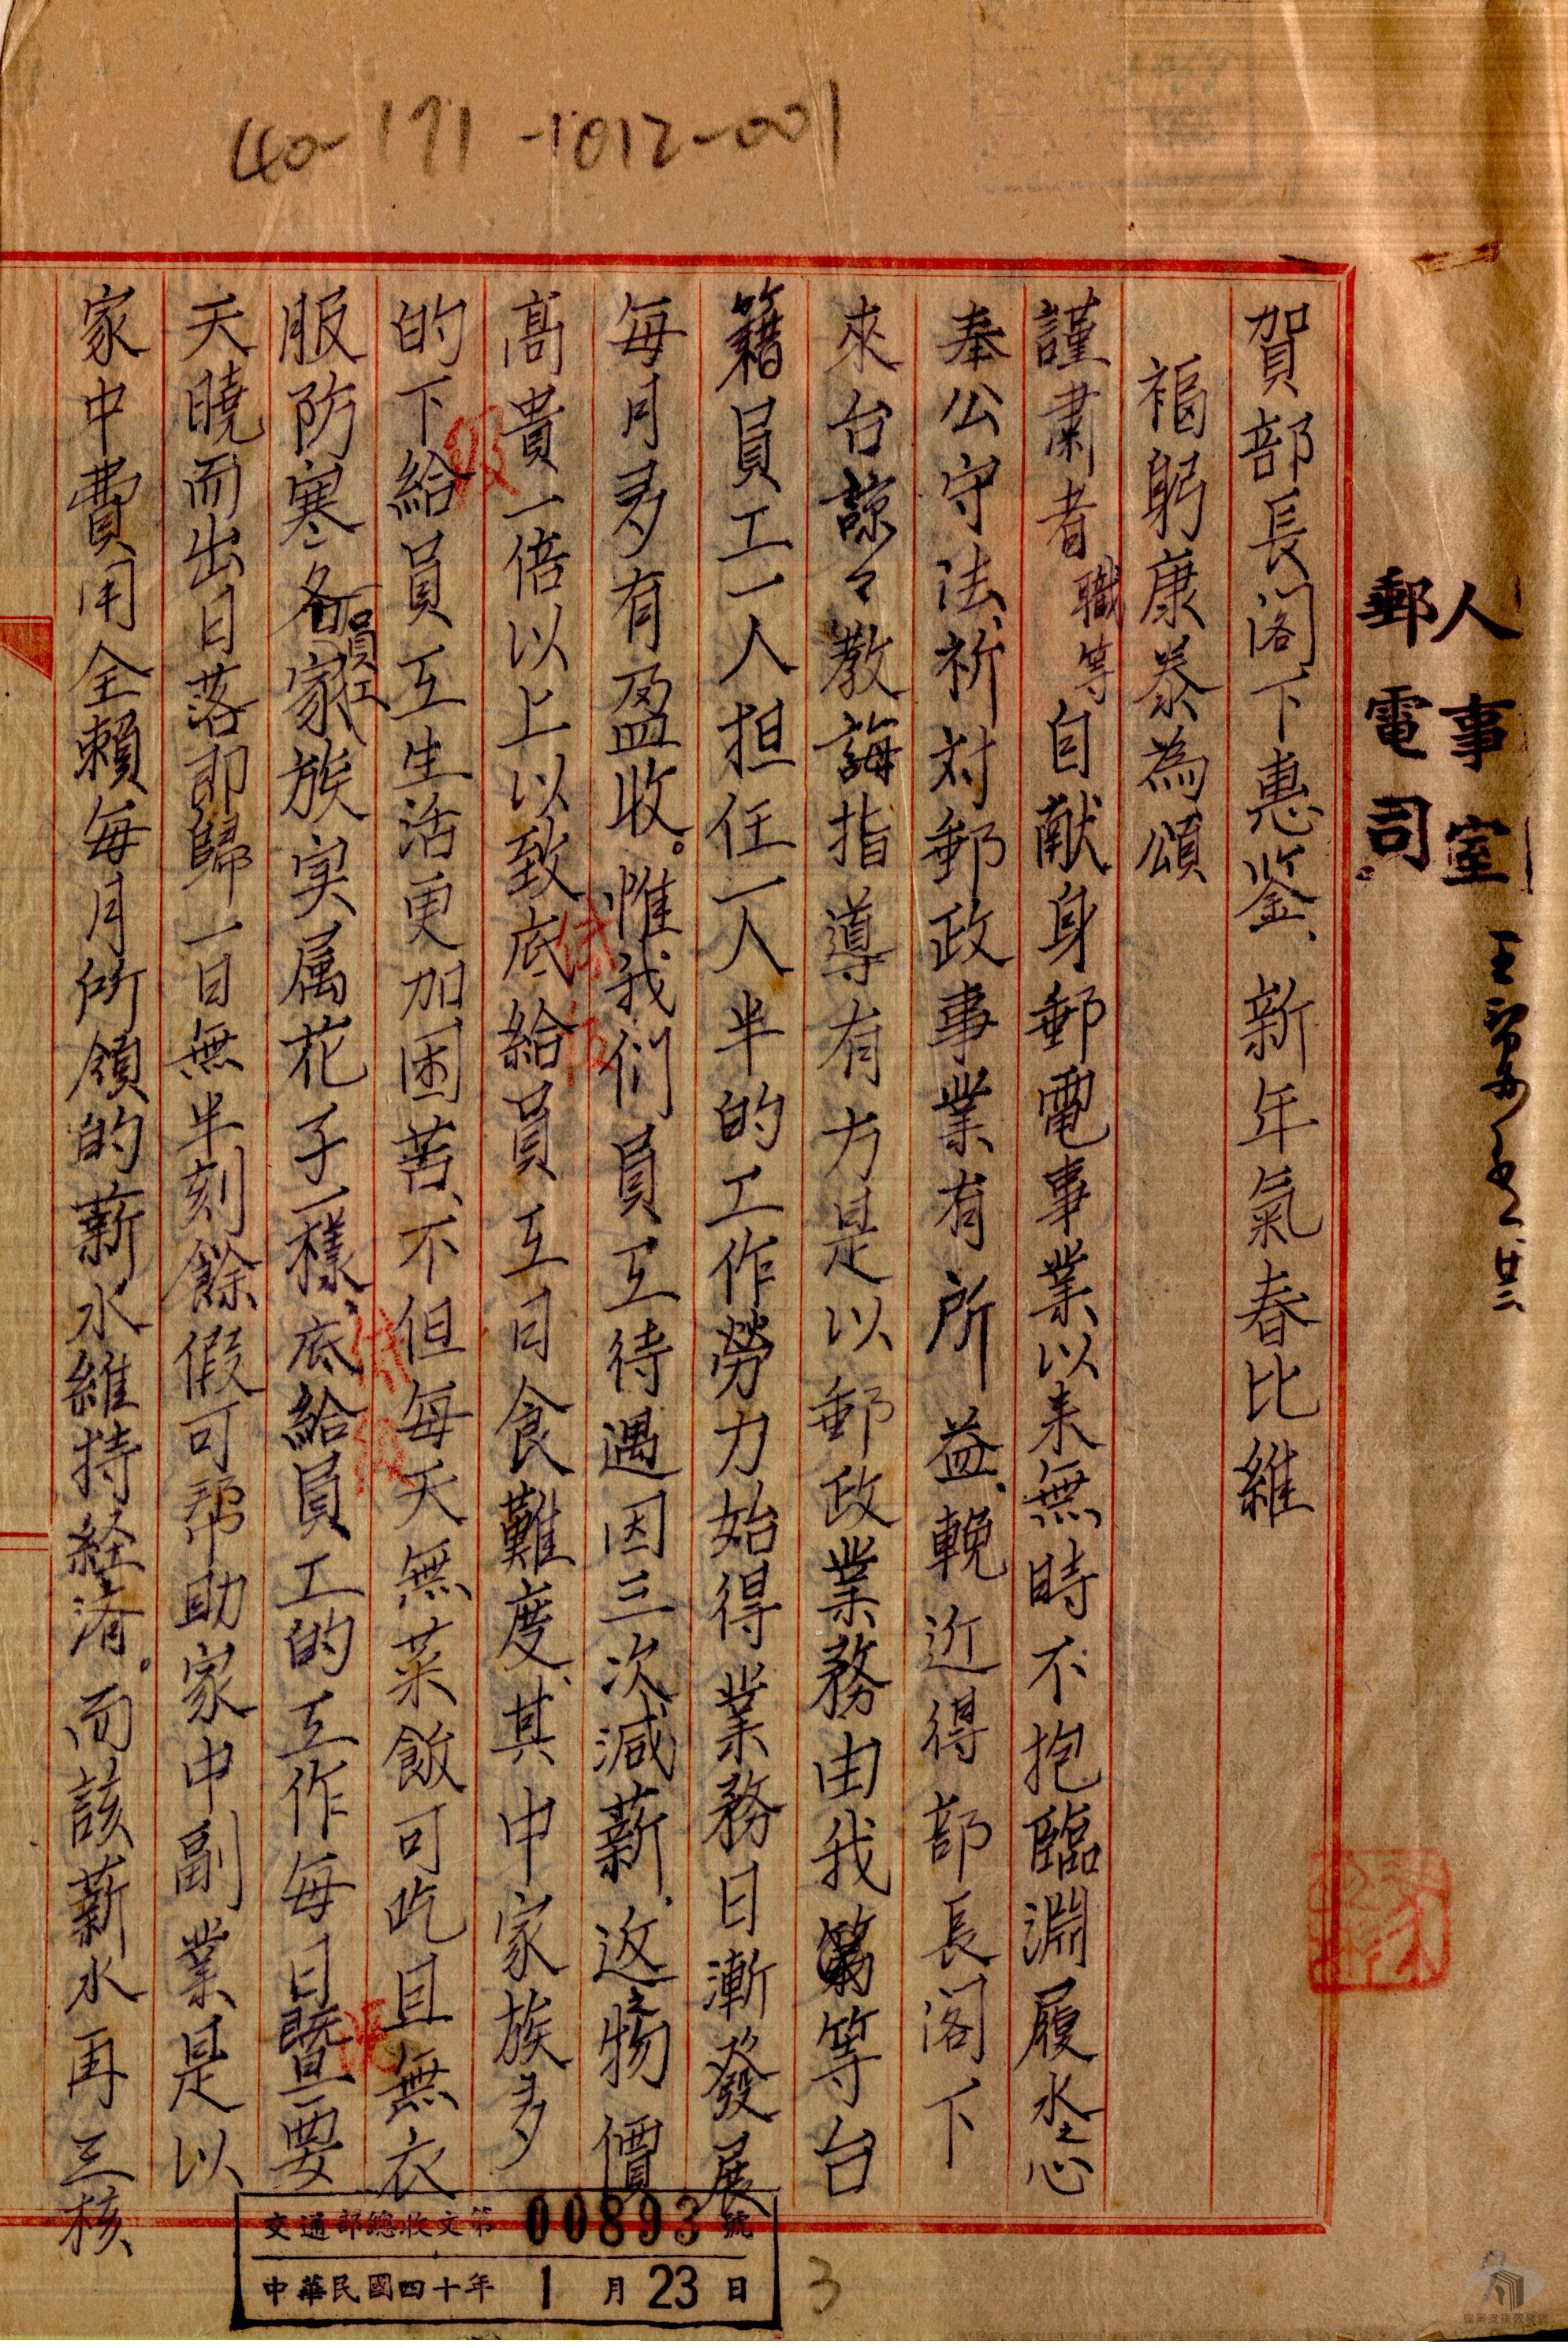 40-171-1012-001
人事室
郵電司。
賀部長閣下惠鉴、新年氣春比維
福躬康泰為頌
謹肅者職等自献身郵電事業以来無時不抱臨淵履氷之心
奉公守法、祈対郵政事業有所益、輓近得部長閣下
來台諒々教誨指導有方是以郵政業務由我等台
籍員工一人担任一人半的工作勞力始得業務日漸發展
每月多有盈收。惟我们員工待遇因三次減薪、返物價
高貴一倍以上以致底給員工日食難度、其中家族多
的下給員工生活更加困苦、不但每天無菜飯可吃且無衣
服防寒各員工家族实属花子一樣、底給員工的工作每日暨要
天曉而出日落即歸一日無半刻餘假可帮助家中副業是以
家中費用全賴每月所領的薪水維持経済。而該薪水再三核
級
低級
低級
交通部總收文第00893號
中華民國四十年1月23日
3